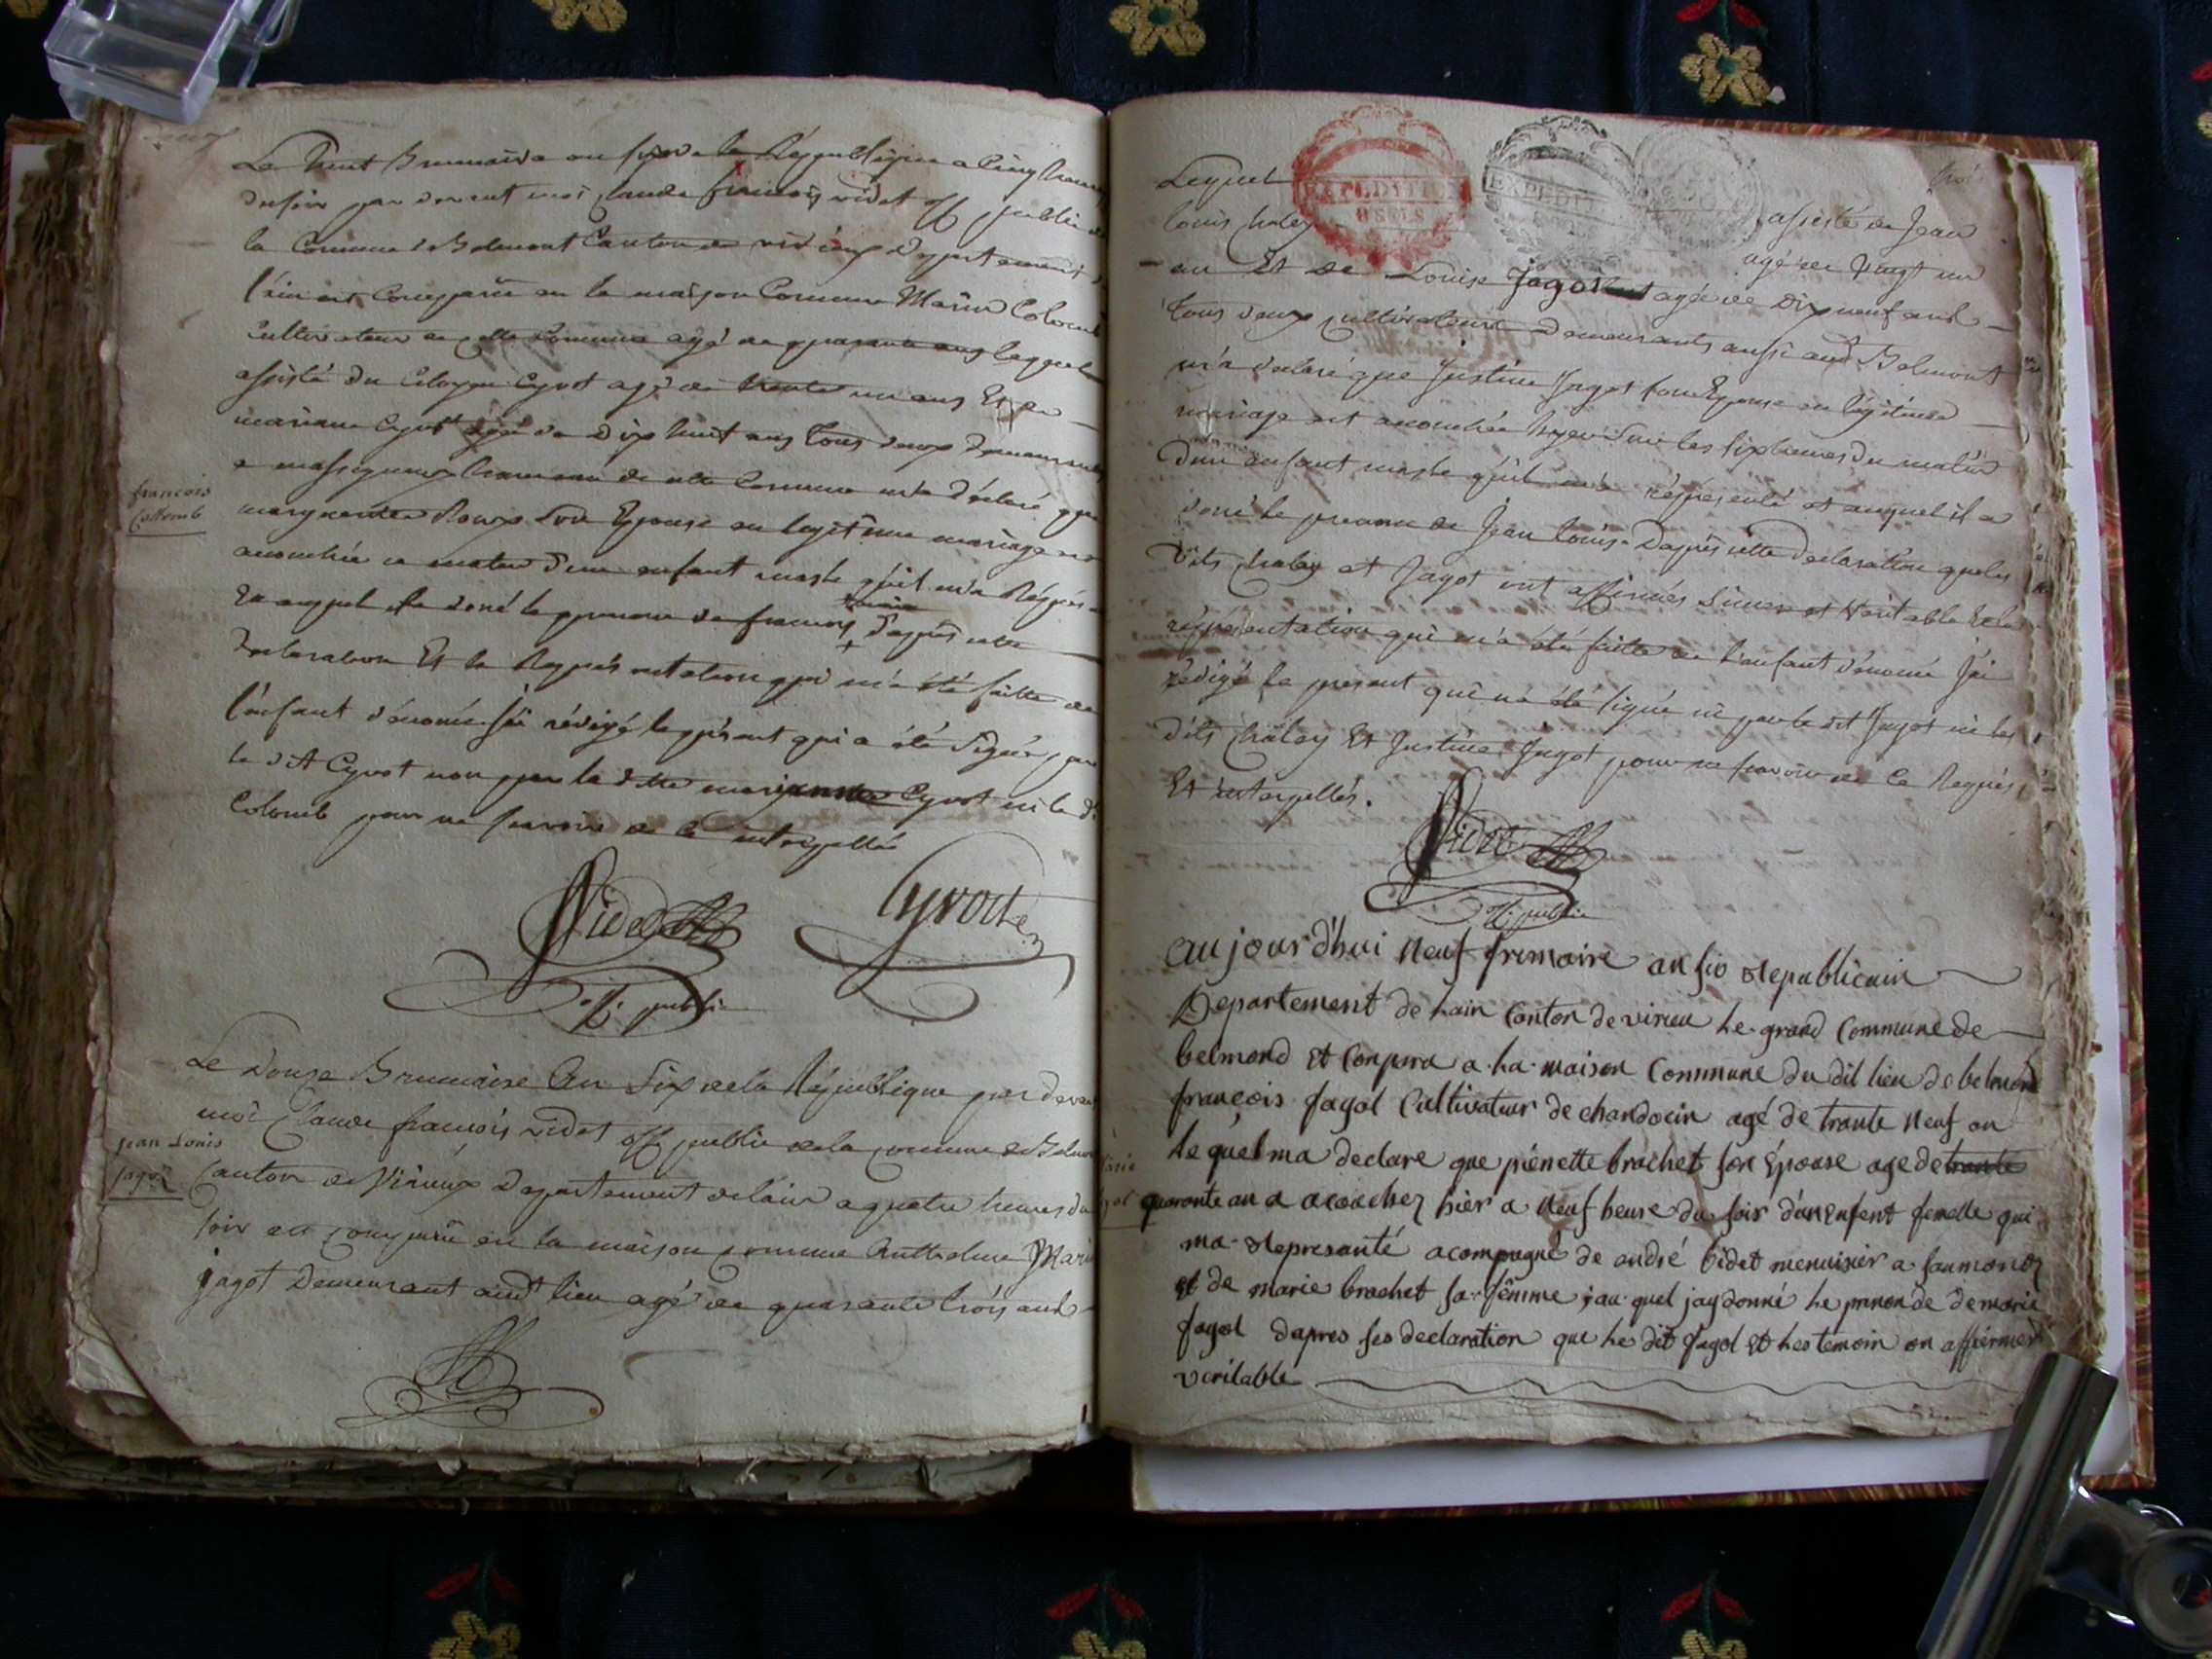 Le huit Brumaire an six de la République a Cinq heures
du soir par devant moi Claude françois videt off public de
la Commune de Belmont Canton de virieux Departement de
l'ain est Comparu en la maison Commune Marin Colomb
Cultivateur de cette Commune agé de quarante ans lequel
assisté du Citoyen Cyvot agé de trente un ans Et de
mariane Cyvot agée de Dix huit ans tous deux Demeurants
a massigneux hameau de cette Commune m'a déclaré que
marguerite Roux son Epouse en legitime mariage est
acouchée ce matin d'un enfant masle qu'il m'a Représ
Et auquel il a doné le prenom de françois d'après cette
Declaration Et la Représentation qui m'a été faitte de
l'enfant dénomé j'ai rédigé le présent qui a été Signé par
le dit Cyvot non par la ditte marianne Cyvot ni le dt
Colomb pour ne scavoir de ce interpellés
françois
Collomb
Videt
Cyvoct
off public
Le Douze Brumaire An Six de la République par devant
moi Claude françois videt off public de la Commune de Belmont
Canton de Virieux Departement de l'ain a quatre heures du
soir est Comparu en la maison Commune Anthelme Marin
jagot Demeurant audt lieu agé de quarante trois ans
jean Louis
jagot
trois
Lequel
EXPEDITION
8 SOLS
EXPEDIT
assisté de Jean
louis chaley
agé de Vingt un
an Et de Louise jagot agée de Dix neuf ans
tous deux cultivateurs Demeurants aussi aud Belmont
m'a déclaré que Justine Jagot son Epouse en légitime
mariage est acouchée hyer sur les six heures du matin
d'un enfant masle qu'il m'a représenté et auquel il a
doné le prenom de Jean Louis. D'après cette declaration que les
dits chaley et Jagot ont affirmés sincer et Véritable Et la
représentation qui m'a été faitte de l'enfant dénomé j'ai
rédigé le présent qui n'a été signé ni par le dit Jagot ni les
dits chaley Et Justine Jagot pour ne scavoir de ce Requis
Et interpellés.
Videt
off public
aujourd'hui neuf frimaire an six republicain
Departement de hain Canton de virieu he grand Commune de
belmond et Conpara a ha maison Commune du dit lieu de belmond
françois jagot Cultivateur de chandocin agé de trante neuf an
he quel ma declare que pierrette brachet son Epouse age de trante
quaronte an a acoucher hier a neuf heure du soir d'un enfent femelle qui
ma represanté acompagné de andré bidet menuisier a samonod
et de marie brachet sa fèmme jau quel jay donné he prenon de de marie
jagot dapres ses declaration que he dit jagot et hes temoin on affirmer
veritable